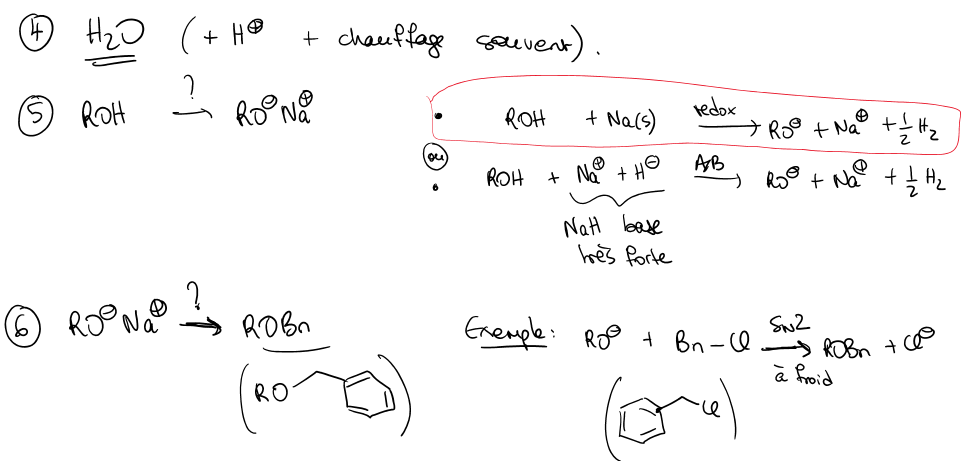 ④ H₂O (+ H⊕ + chauffage souvent).
⑤ ROH →? RO⊖ Na⊕
• ROH + Na(s) →redox RO⊖ + Na⊕ + 1/2 H₂
ou
• ROH + Na⊕ + H⊖ →A/B RO⊖ + Na⊕ + 1/2 H₂
NaH base
très forte
⑥ RO⊖ Na⊕ →? ROBn
Exemple: RO⊖ + Bn-Cl →SN2 ROBn + Cl⊖
à froid
(RO )
( Cl)